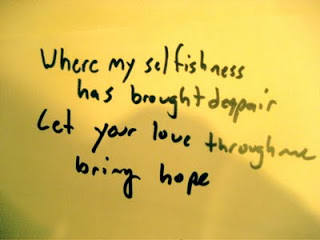 Where my selfishness
has brought despair
Let your love through me
bring hope